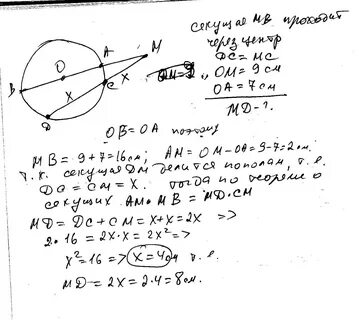 секущая MB проходит
через центр
DC = MC
OM = 9 см
OA = 7 см
MD - ?
A
M
O
X
C
B
X
D
OB = OA поэтому
MB = 9+7=16см; AM = OM - OA = 9-7=2см.
т.к. секущая DM делится пополам, т.е.
DC = CM = X. тогда по теореме о
секущих AM · MB = MD · CM
MD = DC + CM = X + X = 2X =>
2 · 16 = 2X · X = 2X² =>
X² = 16 => X = 4см т.е.
MD = 2X = 2·4 = 8см.